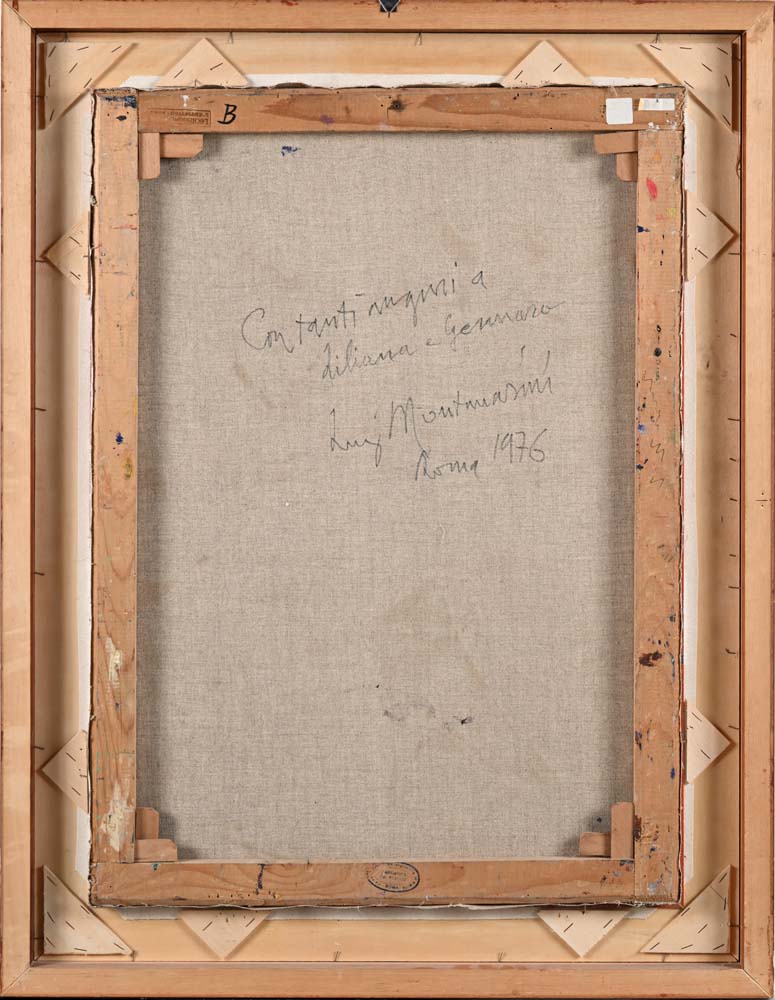 B
Con tanti auguri a
Liliana e Gennaro
Luigi Montanarini
Roma 1976
ROMA